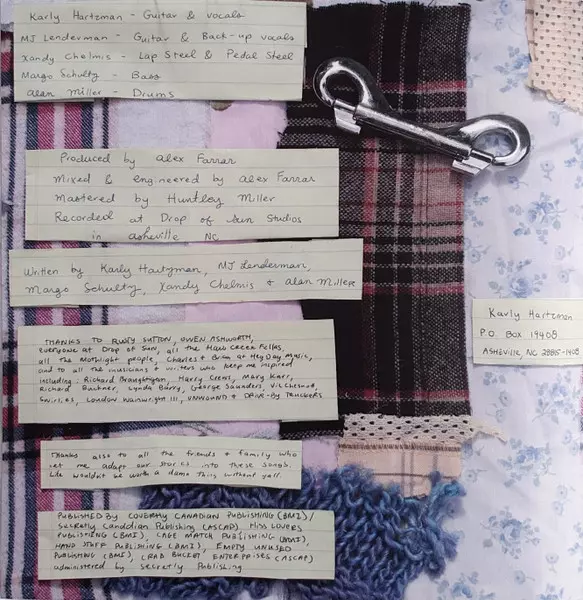 Karly Hartzman - Guitar & vocals
MJ Lenderman - Guitar & Back-up vocals
Xandy Chelmis - Lap Steel & Pedal Steel
Margo Schultz - Bass
alan Miller - Drums
Produced by alex Farrar
Mixed & engineered by alex Farrar
Mastered by Huntley Miller
Recorded at Drop of Sun Studios
in asheville NC
Written by Karly Hartzman, MJ Lenderman,
Margo Schultz, Xandy Chelmis & alan Miller
THANKS TO RUSTY SUTTON, OWEN ASHWORTH,
everyone at Drop of Sun, all the Haw Creek Fellas,
all the Mothlight people, Charles & Brian at HeyDay Music,
and to all the musicians & writers who keep me inspired
including: Richard Brautigan, Harry Crews, Mary Karr,
Richard Buckner, Lynda Barry, George Saunders, Vic Chesnutt,
Swirlies, Loudon Wainwright III, UNWOUND & Drive-By Truckers
Thanks also to all the friends & family who
let me adapt our stories into these songs.
Life wouldn't be worth a damn thing without yall.
PUBLISHED BY COVERTLY CANADIAN PUBLISHING (BMI)/
Secretly Canadian Publishing (ASCAP) Miss LOVERS
PUBLISHING (BMI), CAGE MATCH PUBLISHING (BMI),
HAND STUFF PUBLISHING (BMI), EMPTY UNUSED
PUBLISHING (BMI), CRAB BUCKET ENTERPRISES (ASCAP)
administered by Secretly Publishing
Karly Hartzman
P.O. Box 19408
ASHEVILLE, NC